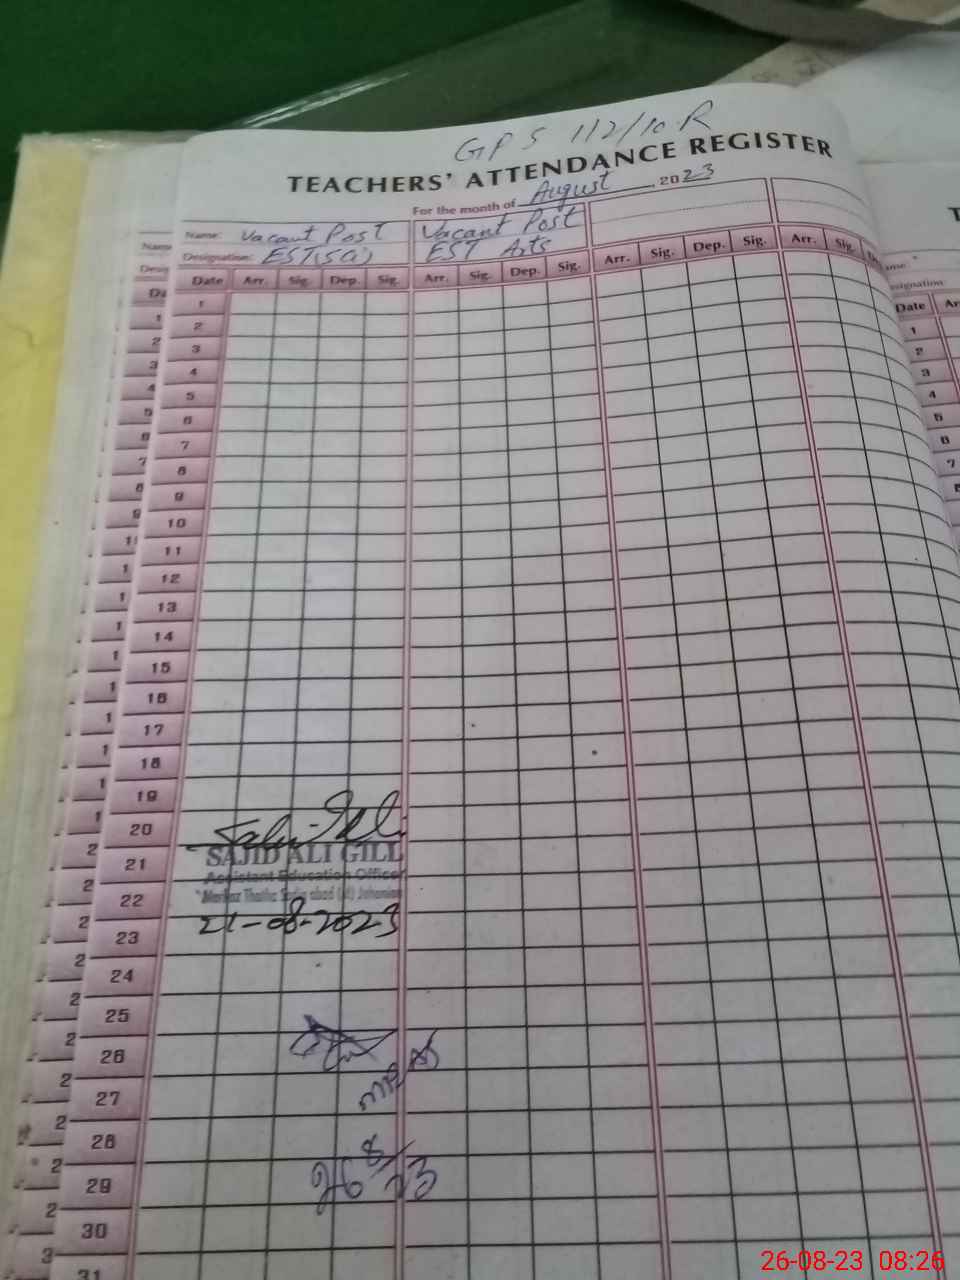 GPS 112/10-R
TEACHERS' ATTENDANCE REGISTER
For the month of August, 2023
Name: Vacant Post Vacant Post
Designation: EST(Sci) EST Arts
Date Arr. Sig. Dep. Sig. Arr. Sig. Dep. Sig. Arr. Sig. Dep. Sig. Arr. Sig.
1
2
3
4
5
6
7
8
9
10
11
12
13
14
15
16
17
18
19
20
21
22
23
24
25
26
27
28
29
30
31
SAJID ALI GILL
Assistant Education Officer
Markaz Thatha Sadiq abad (M) Jahanian
21-08-2023
26/8/23
26-08-23 08:26